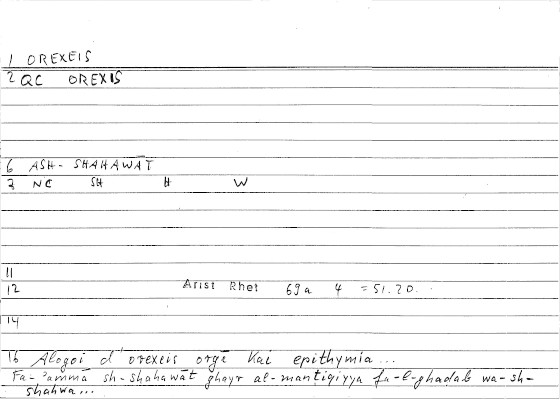 1 OREXEIS
2 QC OREXIS
6 ASH- SHAHAWĀT
3 NC SH H W
11
12 Arist Rhet 69a 4 =51.20.
14
16 Alogoi d'orexeis orgē kai epithymia...
Fa-'ammā sh-shahawāt ghayr al-mantiqiyya fa-l-ghadab wa-sh-
shahwa...